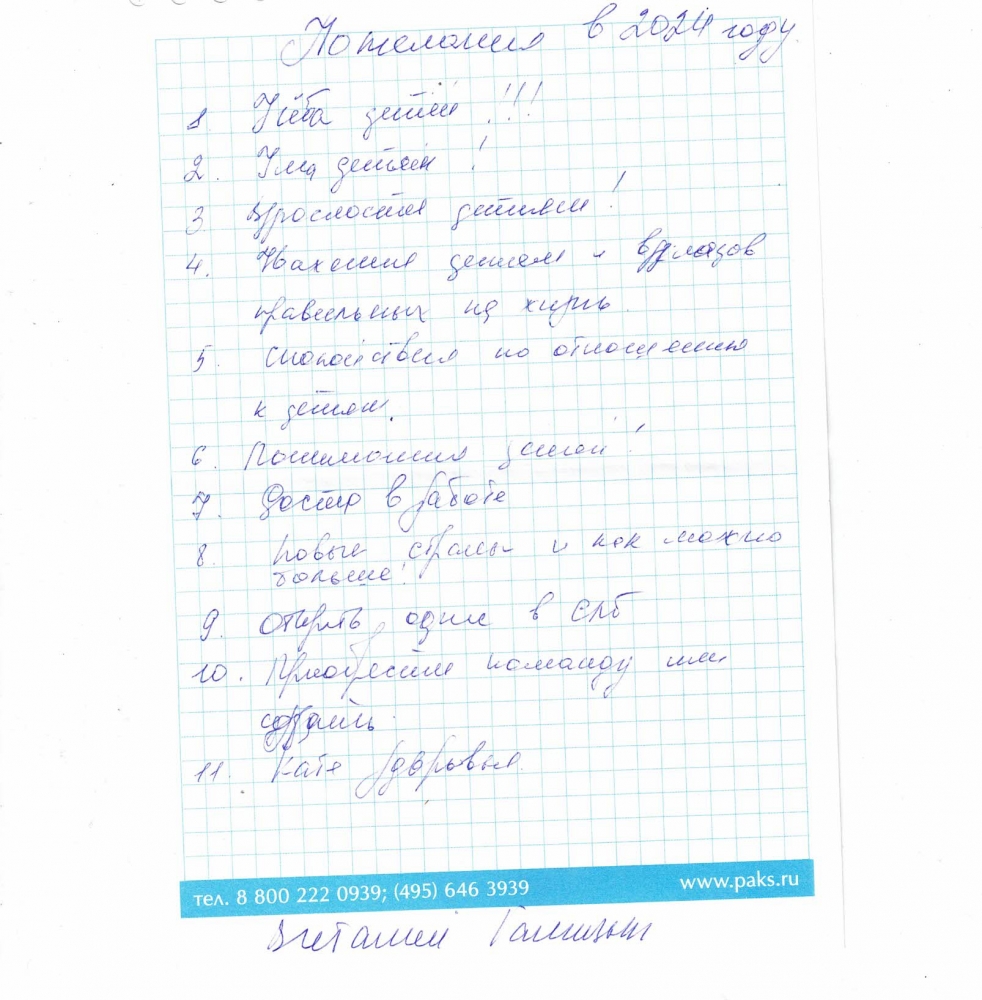 Пожелания в 2024 году
1 Учеба детей !!!
2. Ума детям !
3 Взрослости детям !
4. детям и взглядов
правильных на жизнь.
5. Спокойствия по отношению
к детям.
6. Понимания детей !
7. в работе
8. Новые страны и как можно
больше !
9. Открыть один в СПб
10. Приобрести команду или
создать.
11. Катя здоровья.
тел. 8 800 222 0939; (495) 646 3939
www.paks.ru
Виталий Галицын